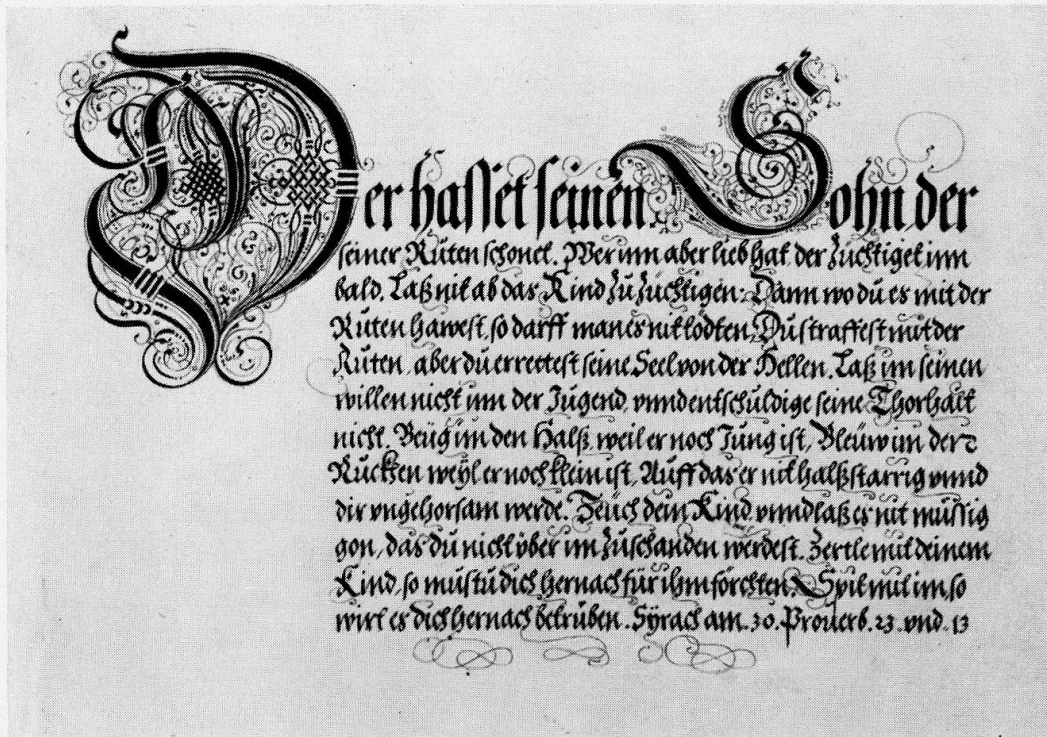 Der hasset seinen Sohn der
seiner Rüten schonet. Wer inn aber lieb hat der züchtiget inn
bald. Laß nit ab das Kind zu züchtigen: Dann wo du es mit der
Rüten hawest, so darff man es nit tödten, Du straffest mit der
Rüten, aber du errettest seine Seel von der Hellen. Laß im seinen
willen nicht inn der Jugend, vnnd entschuldige seine Thorhait
nicht. Beüg im den Halß, weil er noch Jung ist, Bleüw im der
Rucken weyl er noch klein ist, Auff das er nit halßstarrig vnnd
dir vngehorsam werde. Zeuch dein Kind vnnd laß es nit müssig
gon, das du nicht vber im zuschanden werdest. Zertle mit deinem
Kind, so mustu dich hernach für ihm förchten. Spil mit im, so
wirt es dich hernach betrüben. Syrach am. 30. Prouerb. 23. vnd. 13